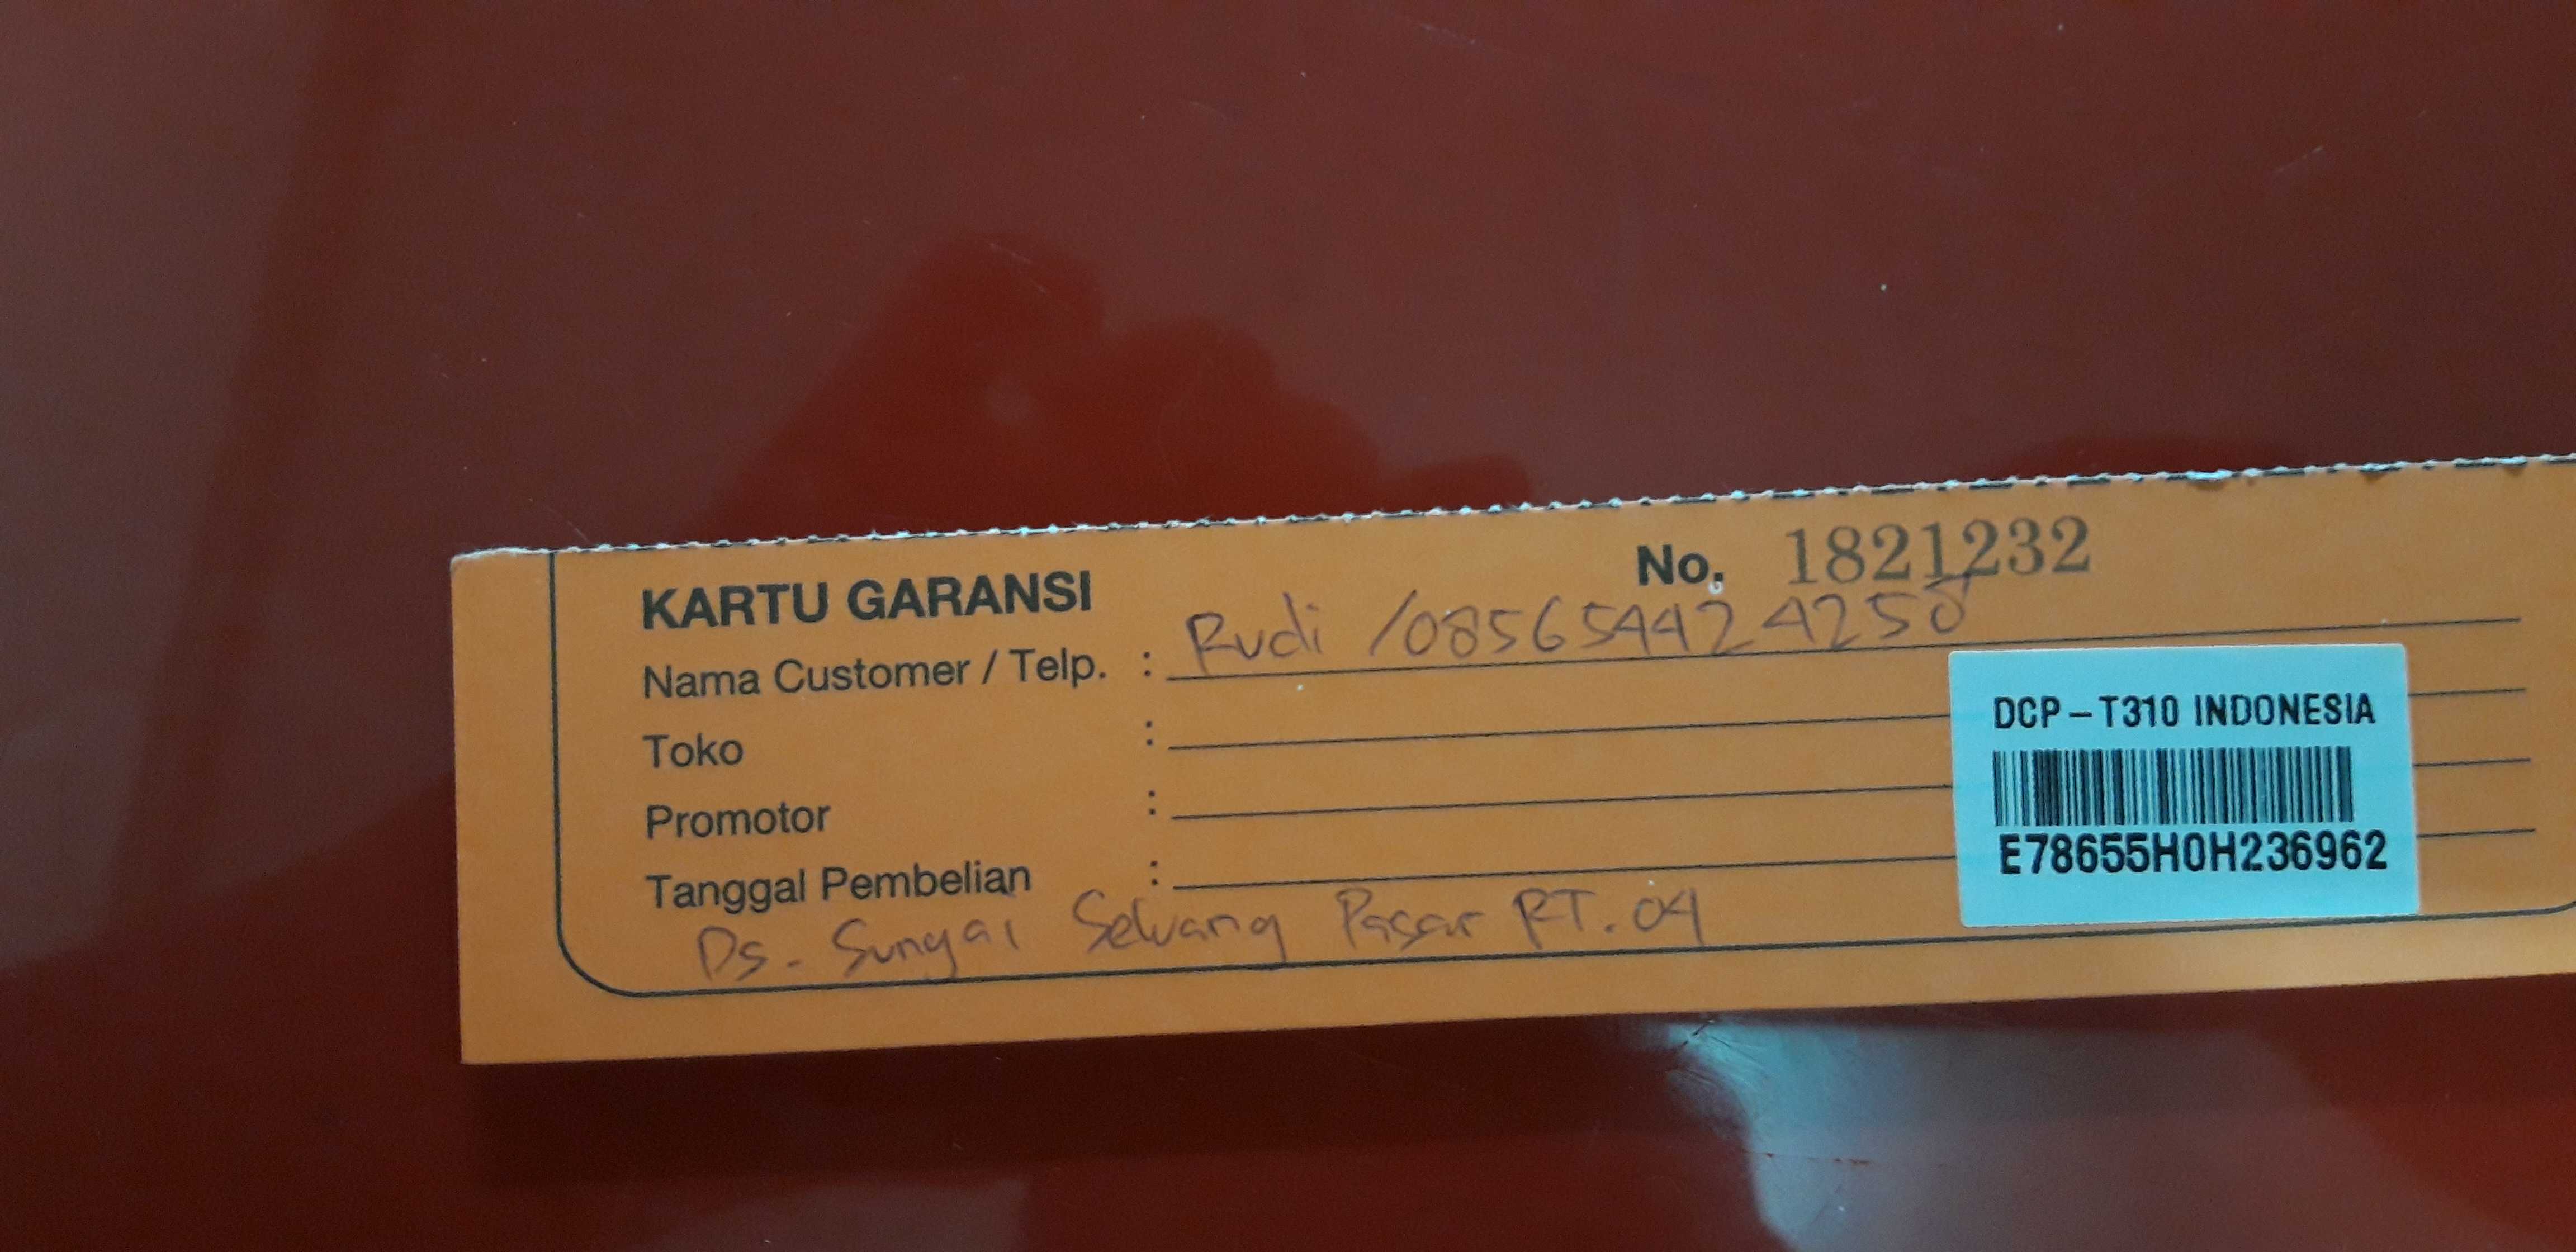 KARTU GARANSI
No. 1821232
Nama Customer / Telp. : Rudi / 085654424250
Toko :
Promotor :
Tanggal Pembelian :
Ds. Sungai Seluang Pasar RT. 04
DCP-T310 INDONESIA
E78655H0H236962